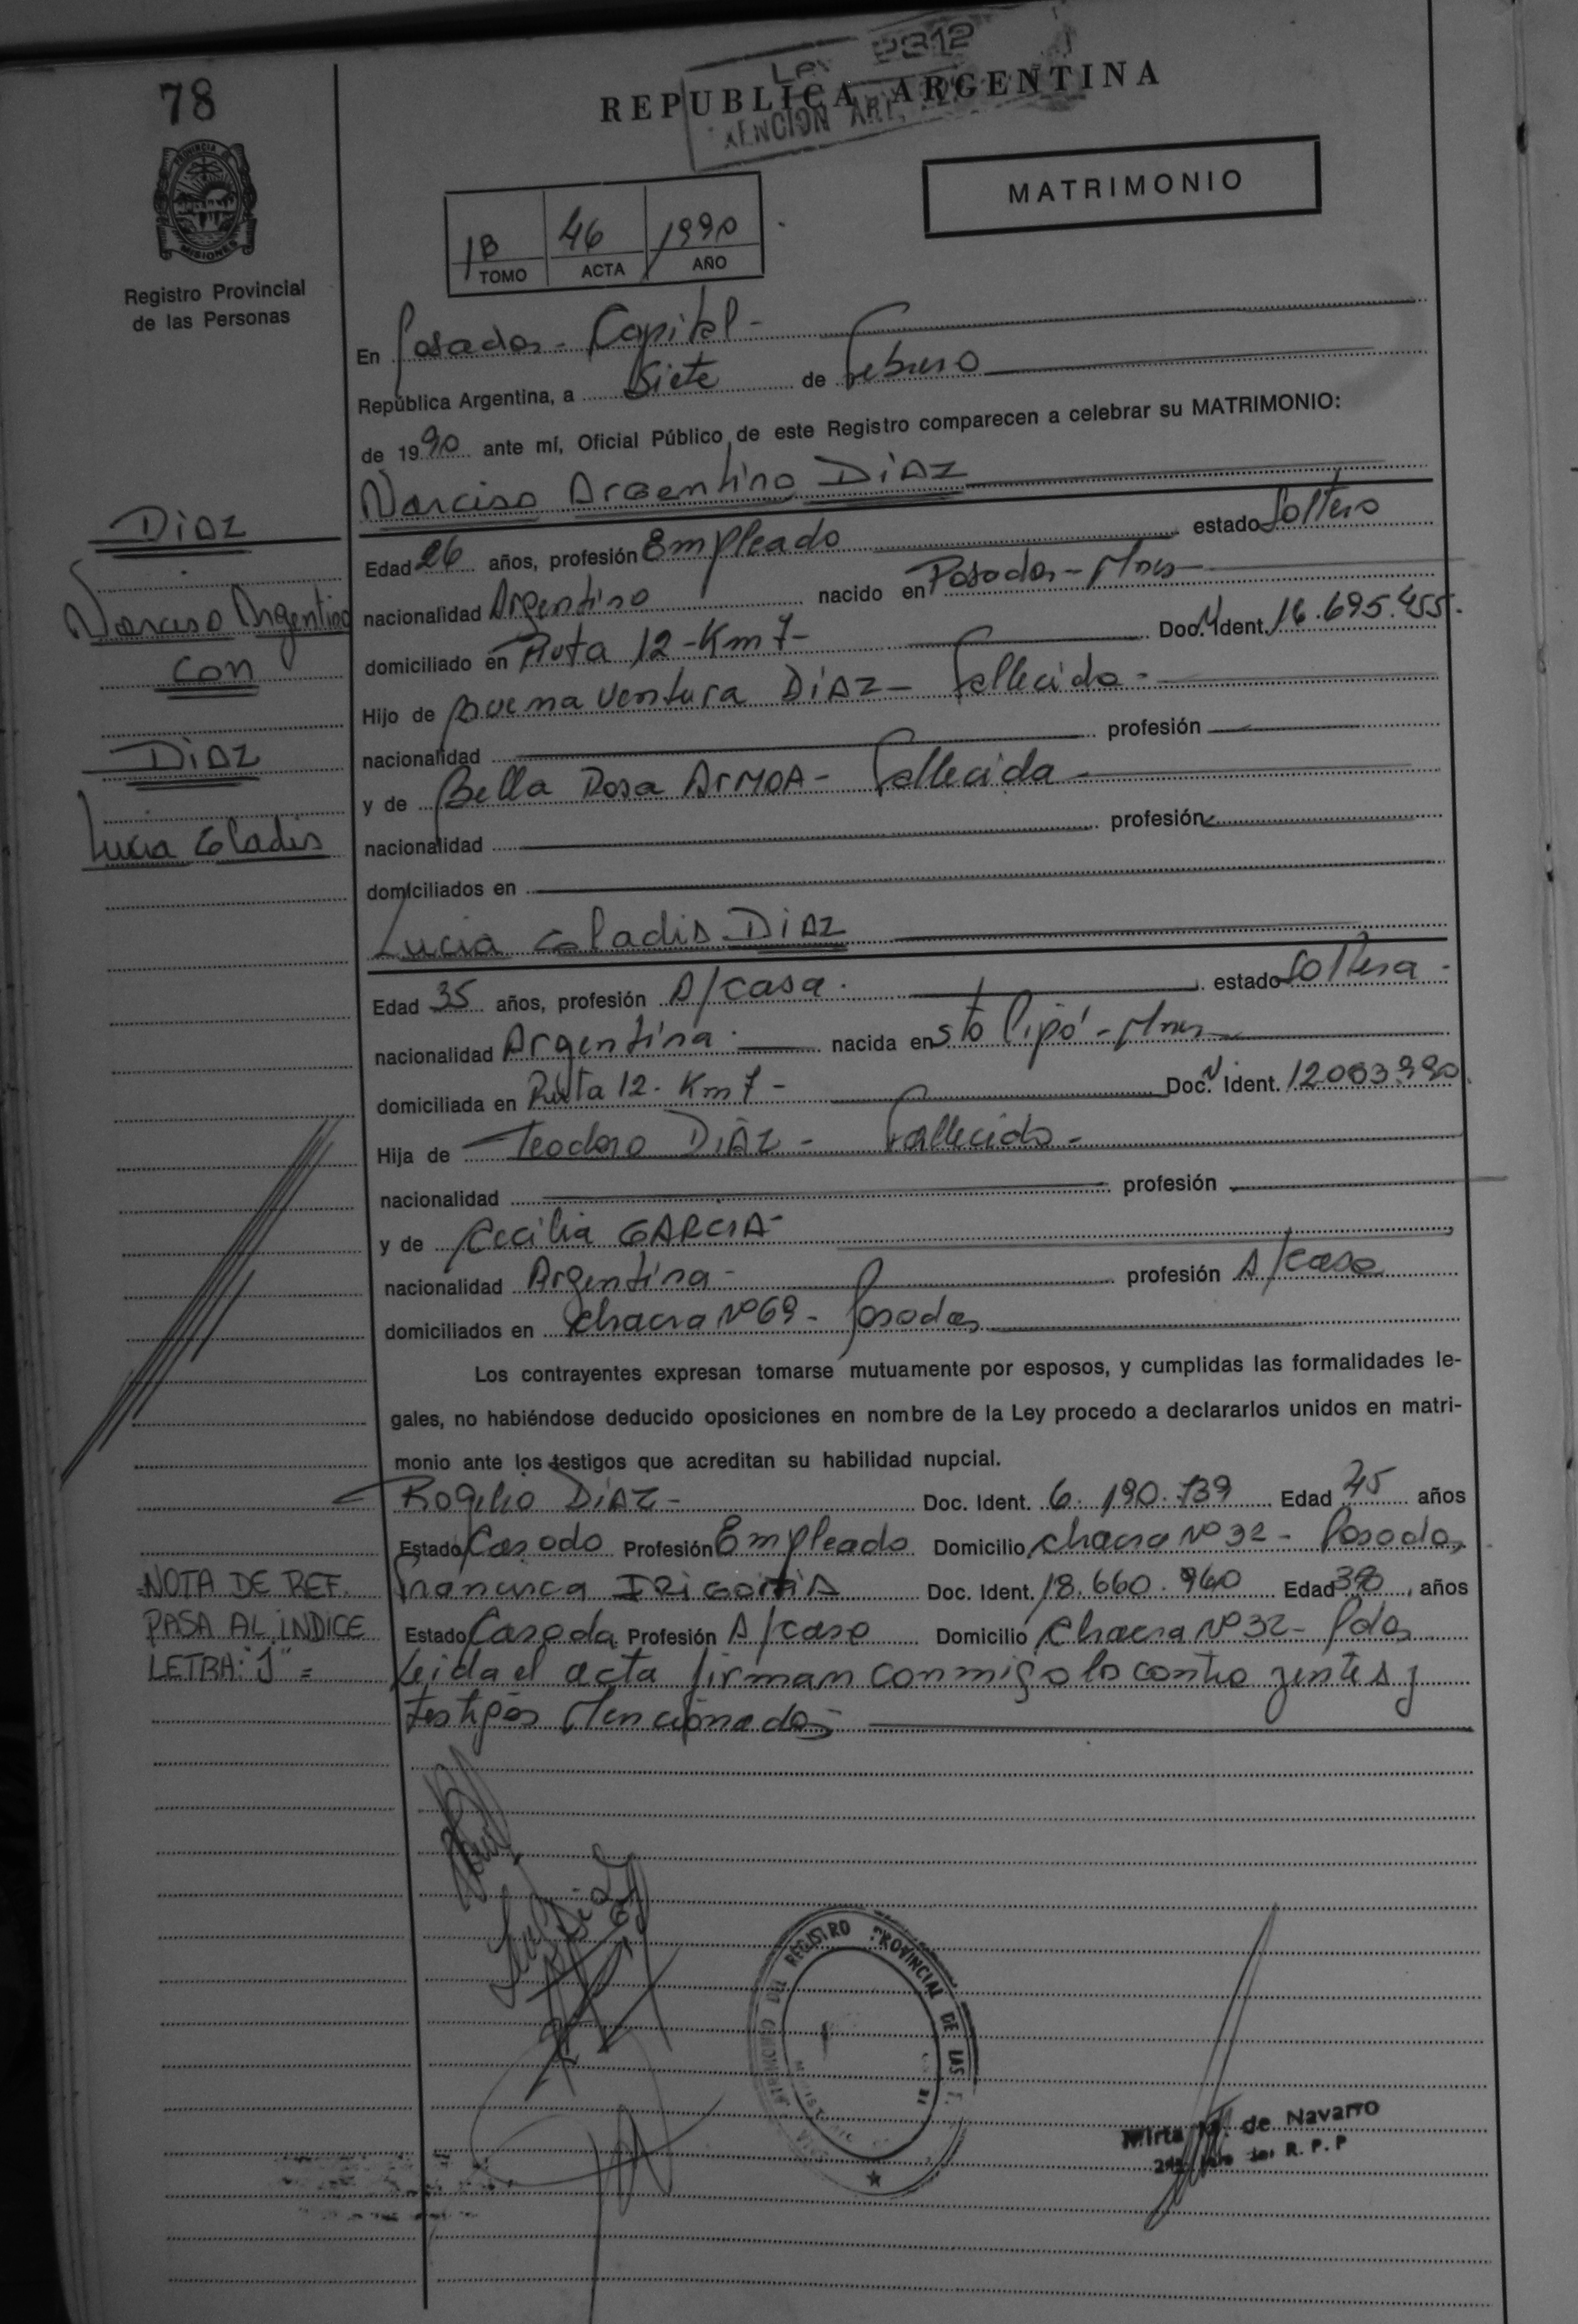 78
LEY 2312
REPUBLICA ARGENTINA
EXENCION ART.
PROVINCIA DE
MISIONES
Registro Provincial
de las Personas
MATRIMONIO
1B 46 1990
TOMO ACTA AÑO
En Posadas - Capital -
República Argentina, a Siete de Febrero
de 1990 ante mí, Oficial Público de este Registro comparecen a celebrar su MATRIMONIO:
Narciso Argentino DiAZ
Edad 26 años, profesión Empleado estado Soltero
nacionalidad Argentino nacido en Posadas - Mnes
domiciliado en Ruta 12 - Km 7 - Doc. Ident. 16.695.455.
Hijo de Buenaventura DiAZ - fallecido -
nacionalidad profesión
y de Bella Rosa ArMOA - fallecida -
nacionalidad profesión
domiciliados en
Lucia Gladis DiAZ
Edad 35 años, profesión A/casa. estado Soltera -
nacionalidad Argentina. nacida en Sto Pipó - Mnes
domiciliada en Ruta 12. Km 7 - Doc. Ident. 12003990.
Hija de Teodoro DiAZ - fallecido -
nacionalidad profesión
y de Cecilia GARCIA -
nacionalidad Argentina - profesión A/casa
domiciliados en chacra Nº 69 - Posadas
Los contrayentes expresan tomarse mutuamente por esposos, y cumplidas las formalidades le-
gales, no habiéndose deducido oposiciones en nombre de la Ley procedo a declararlos unidos en matri-
monio ante los testigos que acreditan su habilidad nupcial.
Rogelio DiAZ - Doc. Ident. 6.190.739 Edad 45 años
Estado Casado Profesión Empleado Domicilio chacra Nº 32 - Posadas
Francisca Doc. Ident. 18.660.960 Edad años
Estado Casada Profesión A/casa Domicilio Chacra Nº 32 - Pdas
Leida el acta firman conmigo los contrayentes y
testigos Mencionados
DiAZ
Narciso Argentino
con
DiAZ
Lucia Gladis
=NOTA DE REF.
PASA AL INDICE
LETRA: "J" =
DEL REGISTRO PROVINCIAL DE LAS
Mirta M. de Navarro
R. P. P